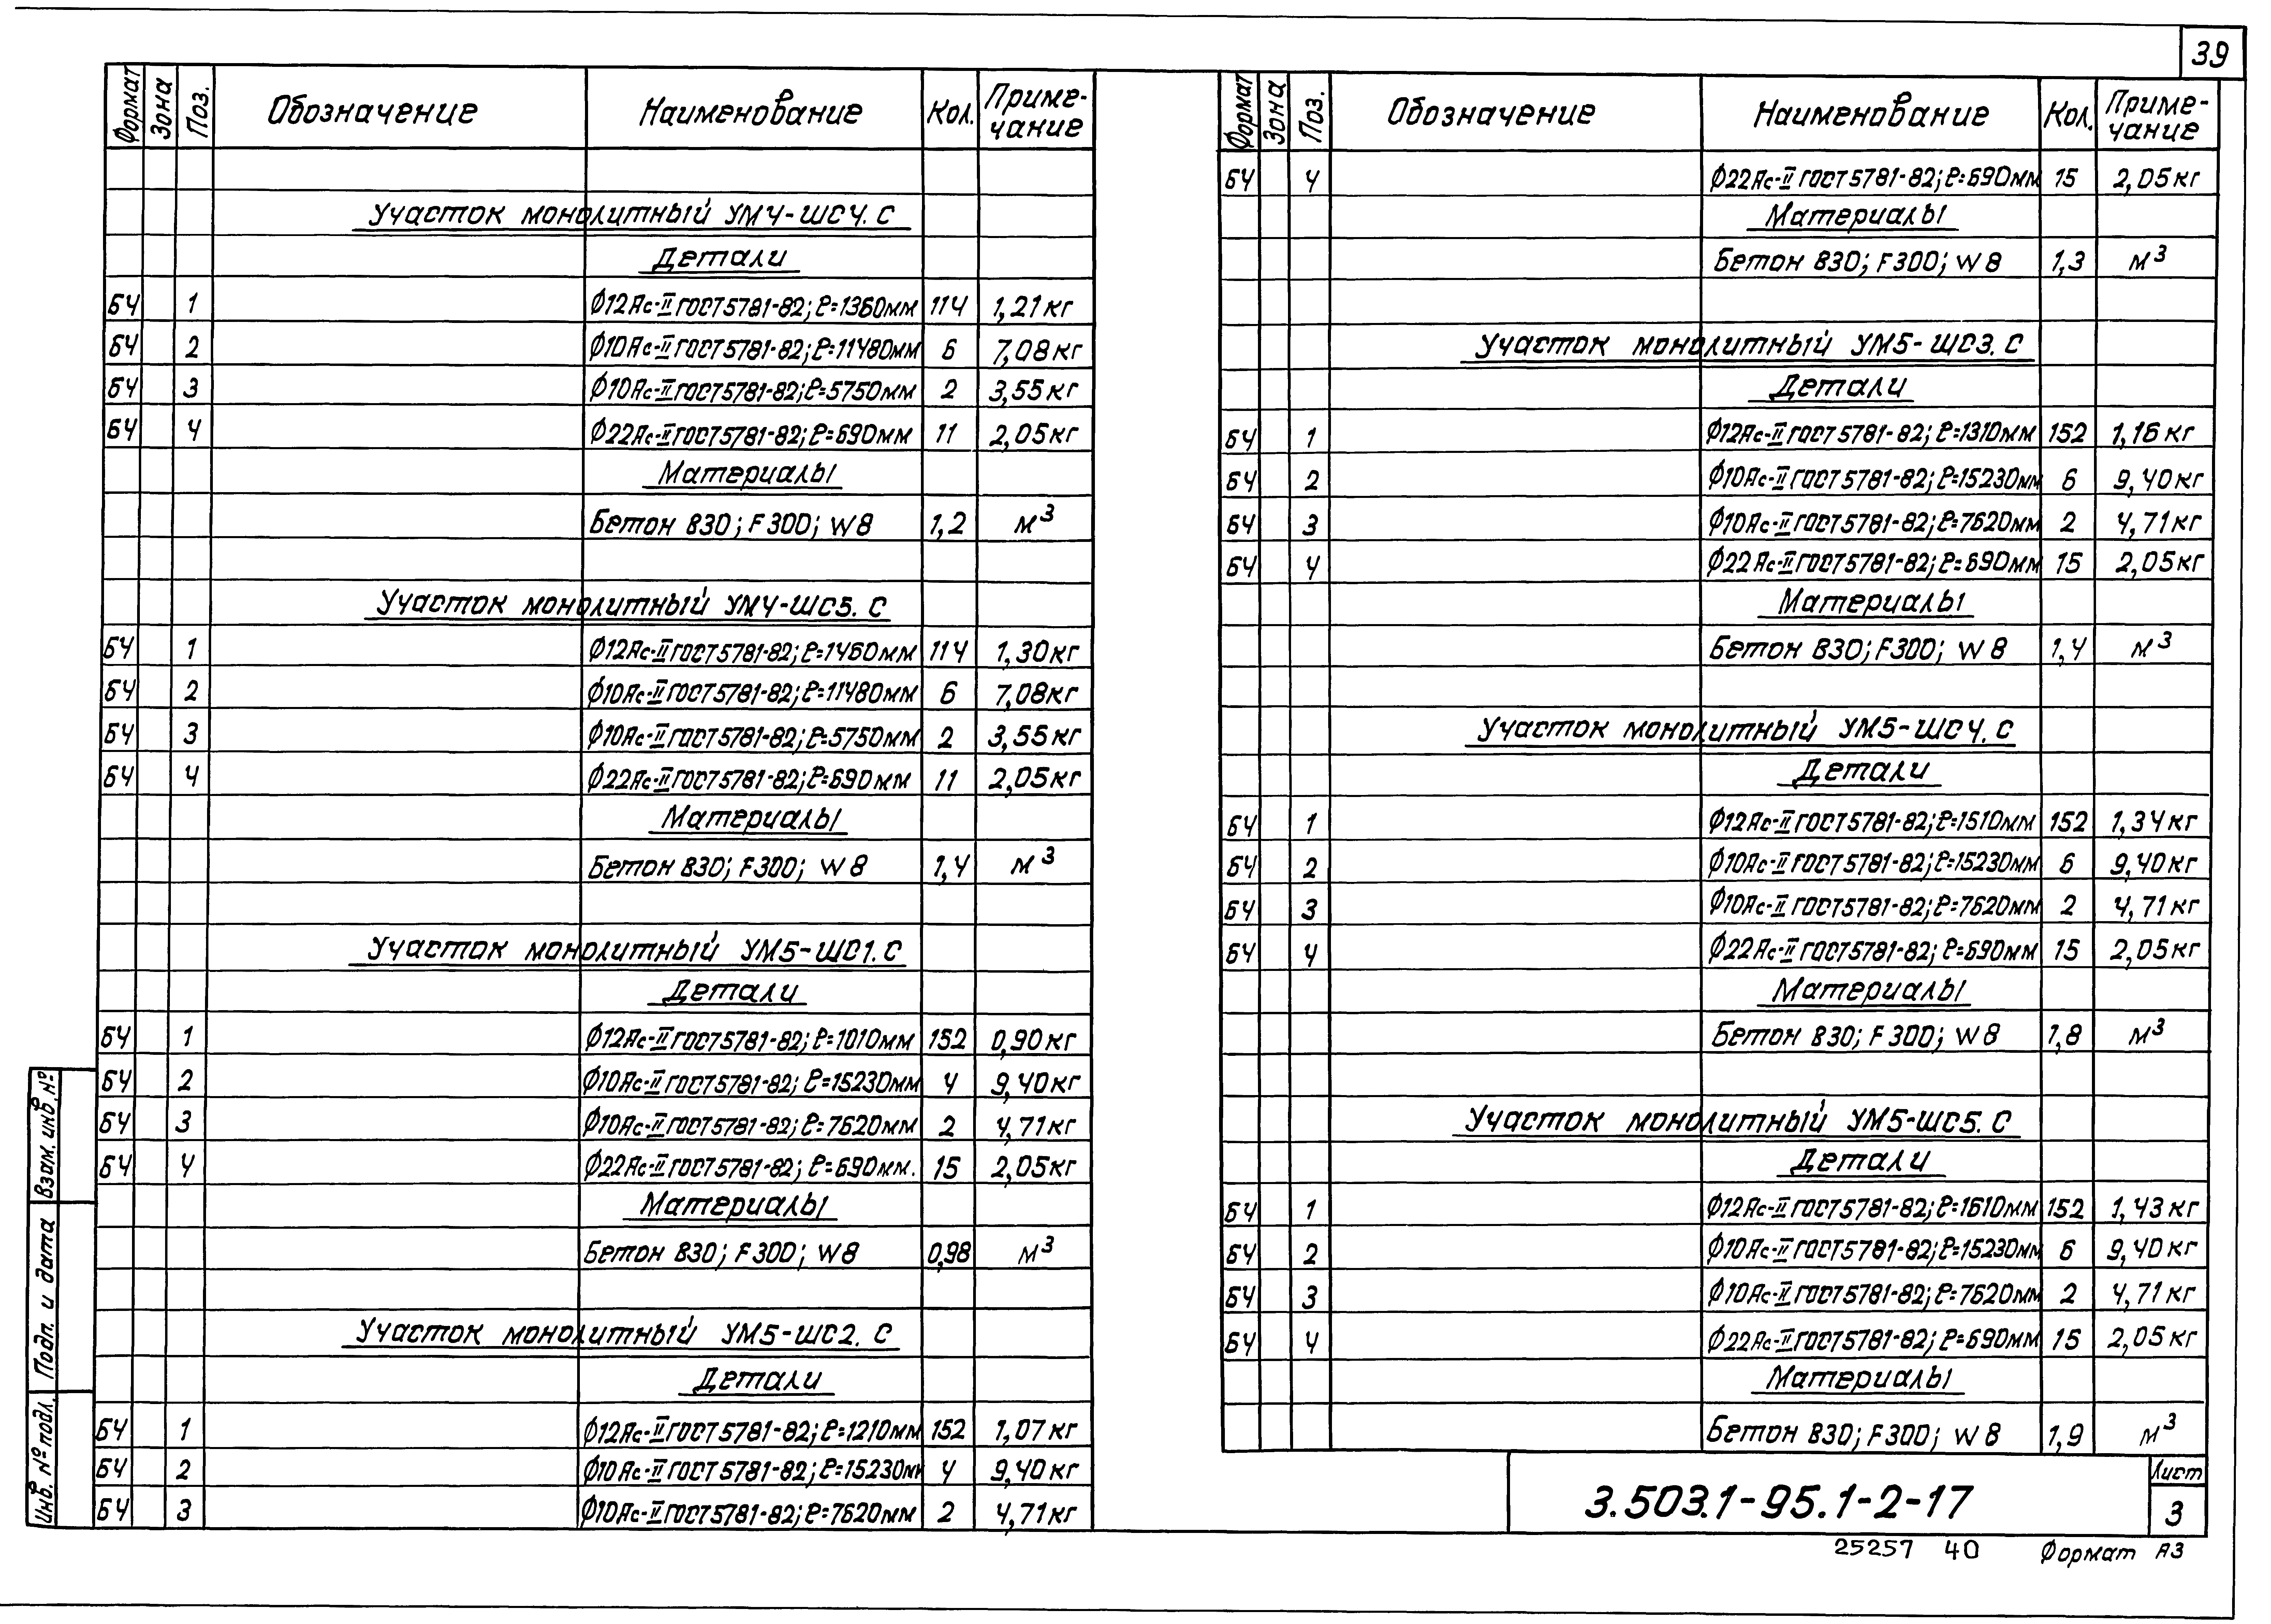 39
Формат Зона Поз. Обозначение Наименование Кол. Приме-чание
Участок монолитный УМ4-ШС4.С
Детали
БЧ 1 Ф12Ас-II ГОСТ 5781-82; ℓ=1360мм 114 1,21кг
БЧ 2 Ф10Ас-II ГОСТ 5781-82; ℓ=11480мм 6 7,08кг
БЧ 3 Ф10Ас-II ГОСТ 5781-82; ℓ=5750мм 2 3,55кг
БЧ 4 Ф22Ас-II ГОСТ 5781-82; ℓ=690мм 11 2,05кг
Материалы
Бетон В30; F300; W8 1,2 м³
Участок монолитный УМ4-ШС5.С
БЧ 1 Ф12Ас-II ГОСТ 5781-82; ℓ=1460мм 114 1,30кг
БЧ 2 Ф10Ас-II ГОСТ 5781-82; ℓ=11480мм 6 7,08кг
БЧ 3 Ф10Ас-II ГОСТ 5781-82; ℓ=5750мм 2 3,55кг
БЧ 4 Ф22Ас-II ГОСТ 5781-82; ℓ=690мм 11 2,05кг
Материалы
Бетон В30; F300; W8 1,4 м³
Участок монолитный УМ5-ШС1.С
Детали
БЧ 1 Ф12Ас-II ГОСТ 5781-82; ℓ=1010мм 152 0,90кг
БЧ 2 Ф10Ас-II ГОСТ 5781-82; ℓ=15230мм 4 9,40кг
БЧ 3 Ф10Ас-II ГОСТ 5781-82; ℓ=7620мм 2 4,71кг
БЧ 4 Ф22Ас-II ГОСТ 5781-82; ℓ=690мм. 15 2,05кг
Материалы
Бетон В30; F300; W8 0,98 м³
Участок монолитный УМ5-ШС2.С
Детали
БЧ 1 Ф12Ас-II ГОСТ 5781-82; ℓ=1210мм 152 1,07кг
БЧ 2 Ф10Ас-II ГОСТ 5781-82; ℓ=15230мм 4 9,40кг
БЧ 3 Ф10Ас-II ГОСТ 5781-82; ℓ=7620мм 2 4,71кг
Формат Зона Поз. Обозначение Наименование Кол. Приме-чание
БЧ 4 Ф22Ас-II ГОСТ 5781-82; ℓ=690мм 15 2,05кг
Материалы
Бетон В30; F300; W8 1,3 м³
Участок монолитный УМ5-ШС3.С
Детали
БЧ 1 Ф12Ас-II ГОСТ 5781-82; ℓ=1310мм 152 1,16кг
БЧ 2 Ф10Ас-II ГОСТ 5781-82; ℓ=15230мм 6 9,40кг
БЧ 3 Ф10Ас-II ГОСТ 5781-82; ℓ=7620мм 2 4,71кг
БЧ 4 Ф22Ас-II ГОСТ 5781-82; ℓ=690мм 15 2,05кг
Материалы
Бетон В30; F300; W8 1,4 м³
Участок монолитный УМ5-ШС4.С
Детали
БЧ 1 Ф12Ас-II ГОСТ 5781-82; ℓ=1510мм 152 1,34кг
БЧ 2 Ф10Ас-II ГОСТ 5781-82; ℓ=15230мм 6 9,40кг
БЧ 3 Ф10Ас-II ГОСТ 5781-82; ℓ=7620мм 2 4,71кг
БЧ 4 Ф22Ас-II ГОСТ 5781-82; ℓ=690мм 15 2,05кг
Материалы
Бетон В30; F300; W8 1,8 м³
Участок монолитный УМ5-ШС5.С
Детали
БЧ 1 Ф12Ас-II ГОСТ 5781-82; ℓ=1610мм 152 1,43кг
БЧ 2 Ф10Ас-II ГОСТ 5781-82; ℓ=15230мм 6 9,40кг
БЧ 3 Ф10Ас-II ГОСТ 5781-82; ℓ=7620мм 2 4,71кг
БЧ 4 Ф22Ас-II ГОСТ 5781-82; ℓ=690мм 15 2,05кг
Материалы
Бетон В30; F300; W8 1,9 м³
Инв. № подл. Подп. и дата Взам. инв. №
3.503.1-95.1-2-17
Лист
3
25257 40 Формат А3